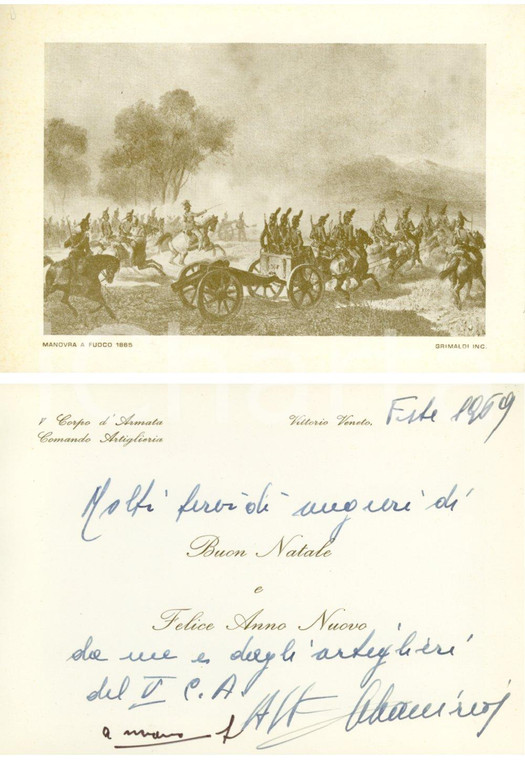 MANOVRA A FUOCO 1865
GRIMALDI INC.
V Corpo d'Armata
Comando Artiglieria
Vittorio Veneto, Feste 1969
Molti fervidi auguri di
Buon Natale
e
Felice Anno Nuovo
da me e dagli artiglieri
del V C.A.
a mano